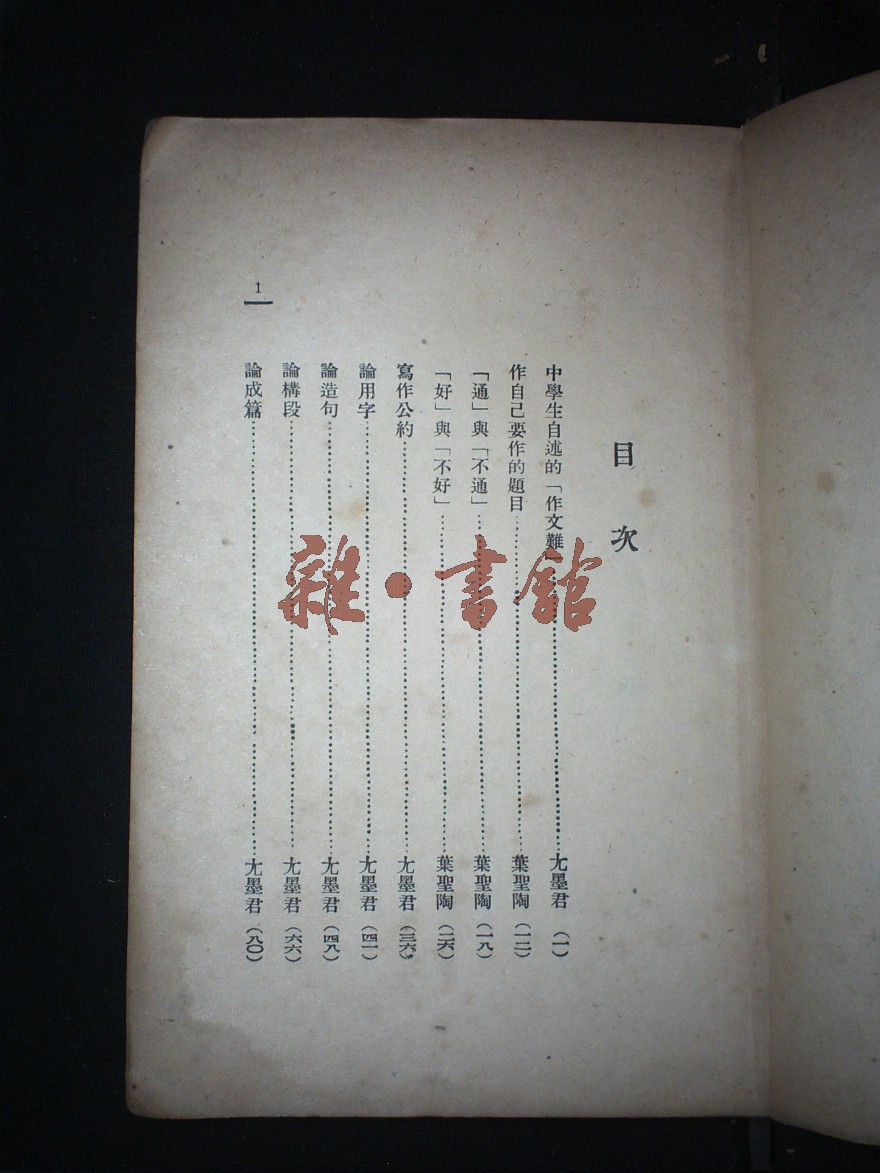 目次
中學生自述的「作文難」……尤墨君（一）
作自己要作的題目……葉聖陶（一二）
「通」與「不通」……葉聖陶（一八）
「好」與「不好」……葉聖陶（二六）
寫作公約……尤墨君（三六）
論用字……尤墨君（四一）
論造句……尤墨君（四八）
論構段……尤墨君（六六）
論成篇……尤墨君（八〇）
1
雜·書館